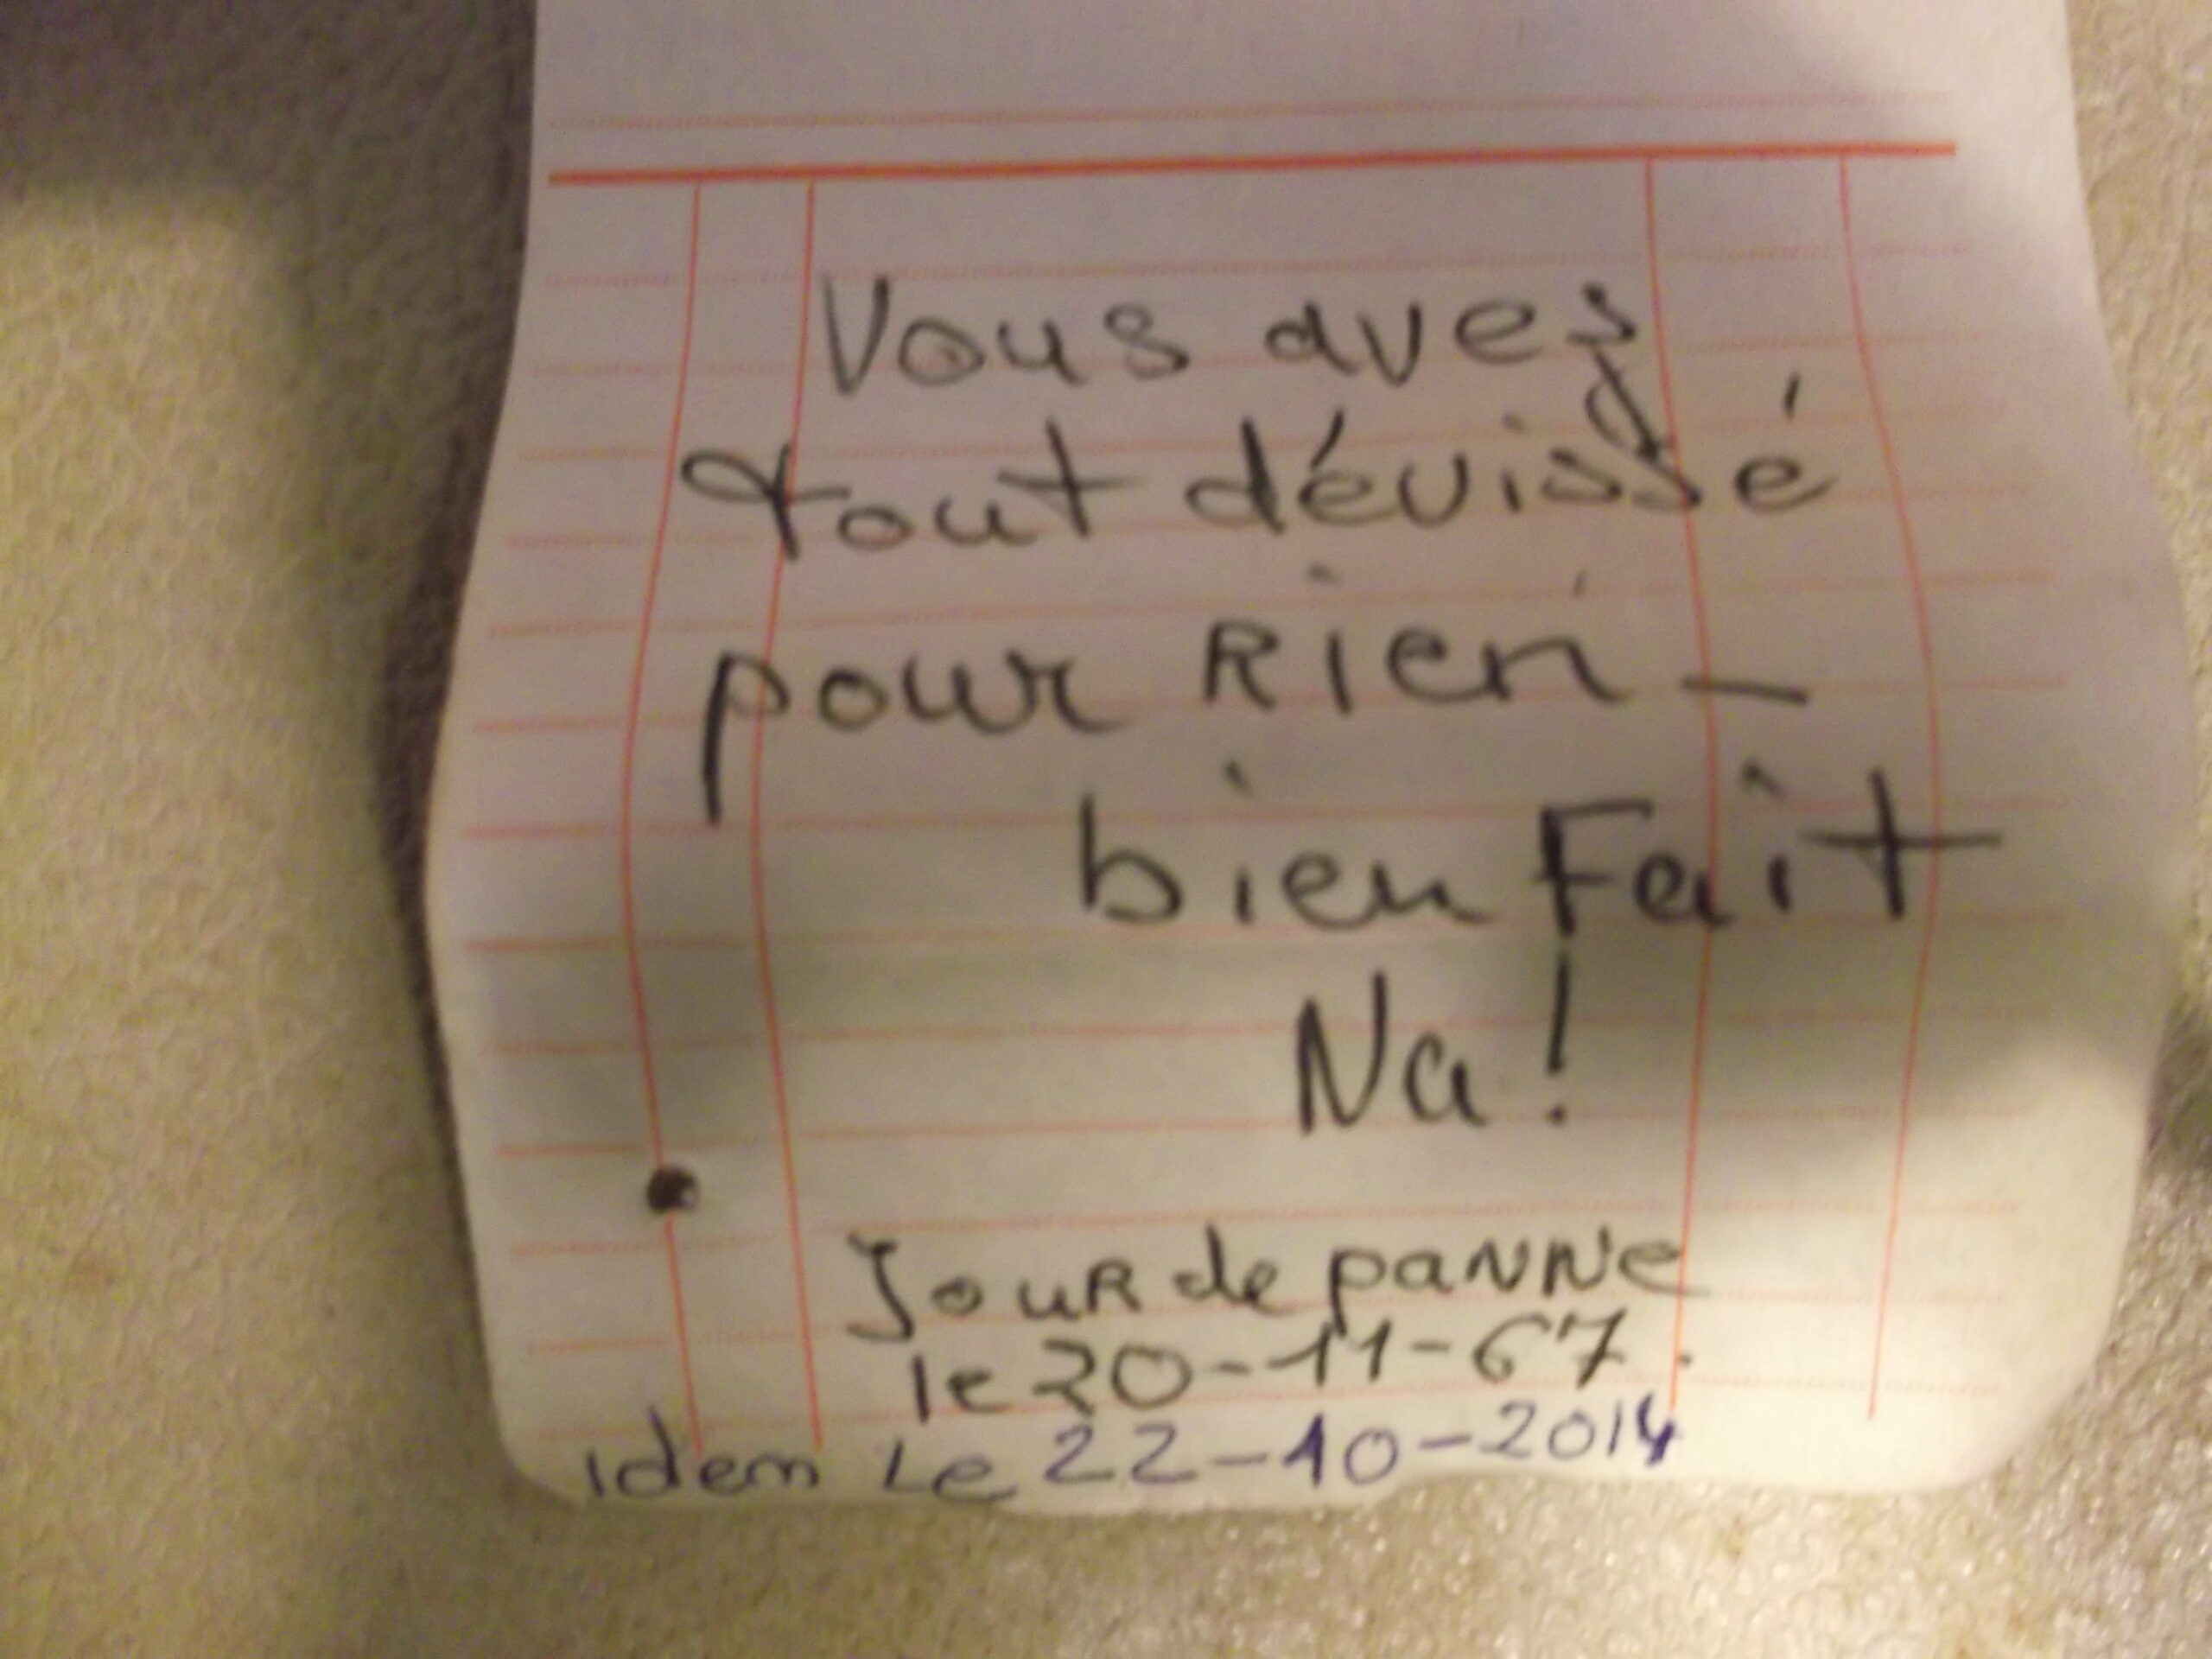 Vous avez
tout dévissé
pour Rien -
bien Fait
Na!
Jour de panne
le 20-11-67.
idem Le 22-10-2014